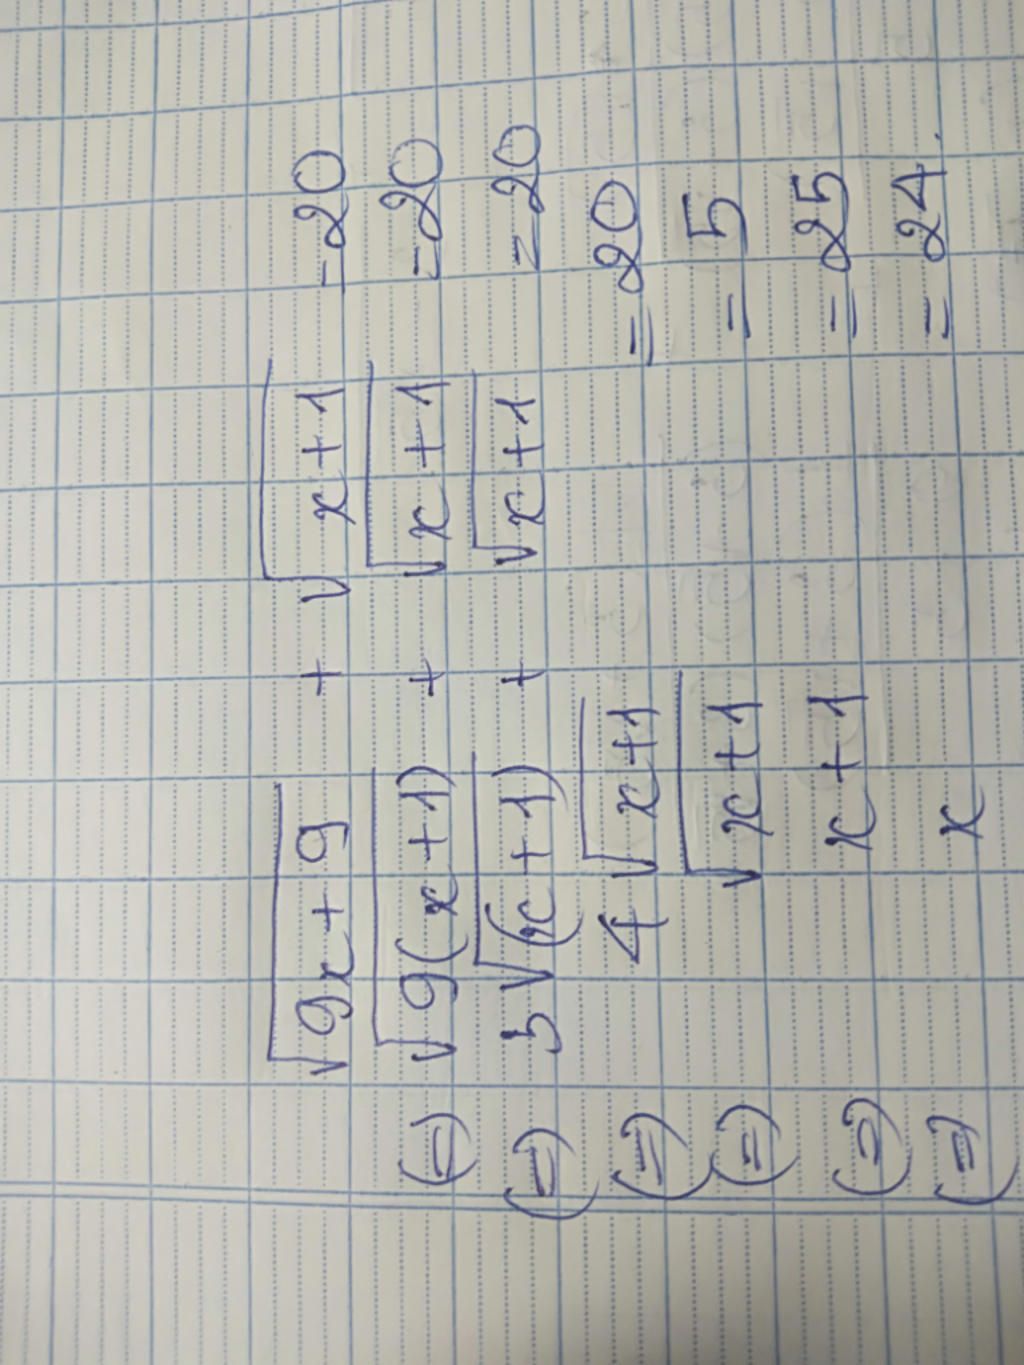 √9x+9 + √x+1 =20
(=) √9(x+1) + √x+1 =20
(=) 3√(x+1) + √x+1 =20
(=) 4√x+1 =20
(=) √x+1 =5
(=) x+1 =25
(=) x =24.